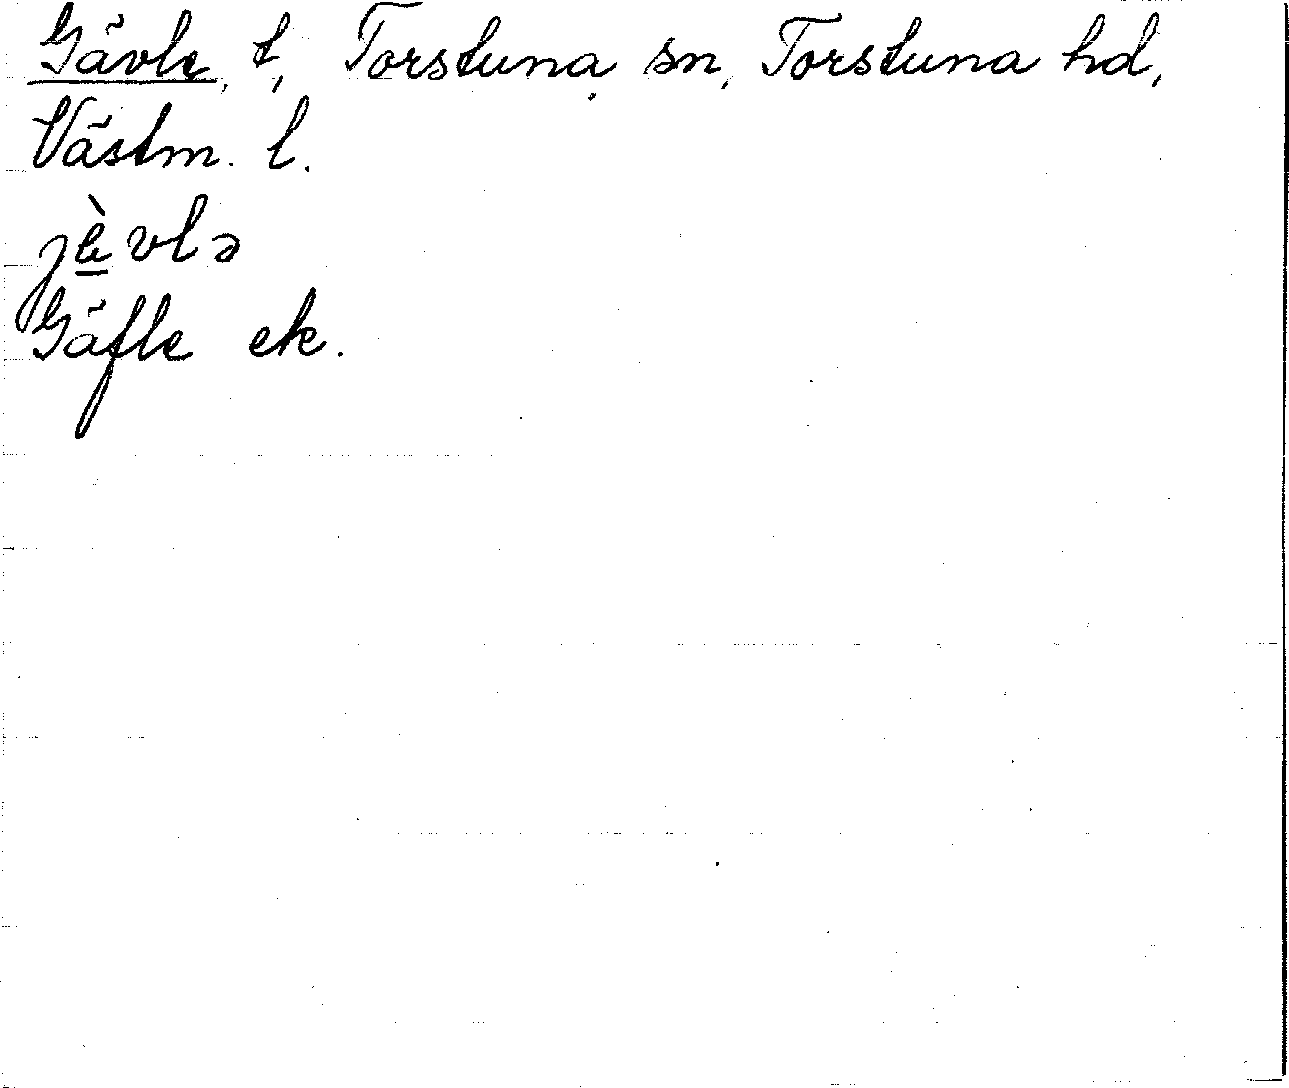 Gävle, t, Torstuna sn, Torstuna hd,
Västm. l.
jè̱vlə
Gäfle ek.